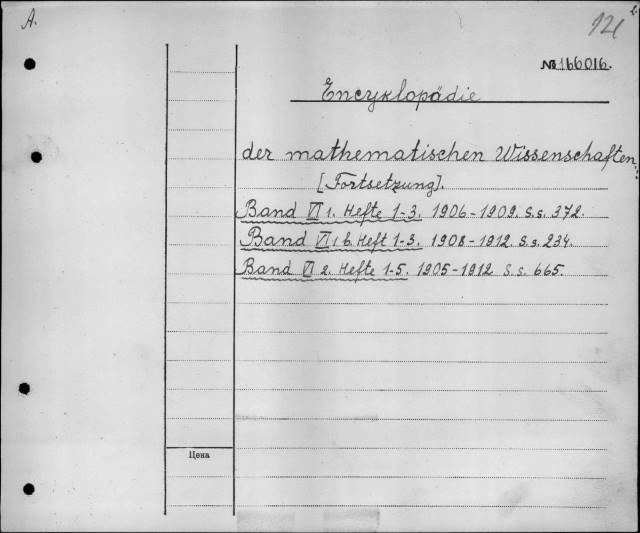 A.
121
2.
№ 166016.
Encyklopädie
der mathematischen Wissenschaften
[Fortsetzung].
Band VI 1. Hefte 1-3. 1906-1909. S.s. 372.
Band VI 1 b. Heft 1-3. 1908-1912. S.s. 234.
Band VI 2. Hefte 1-5. 1905-1912 S.s. 665.
Цена